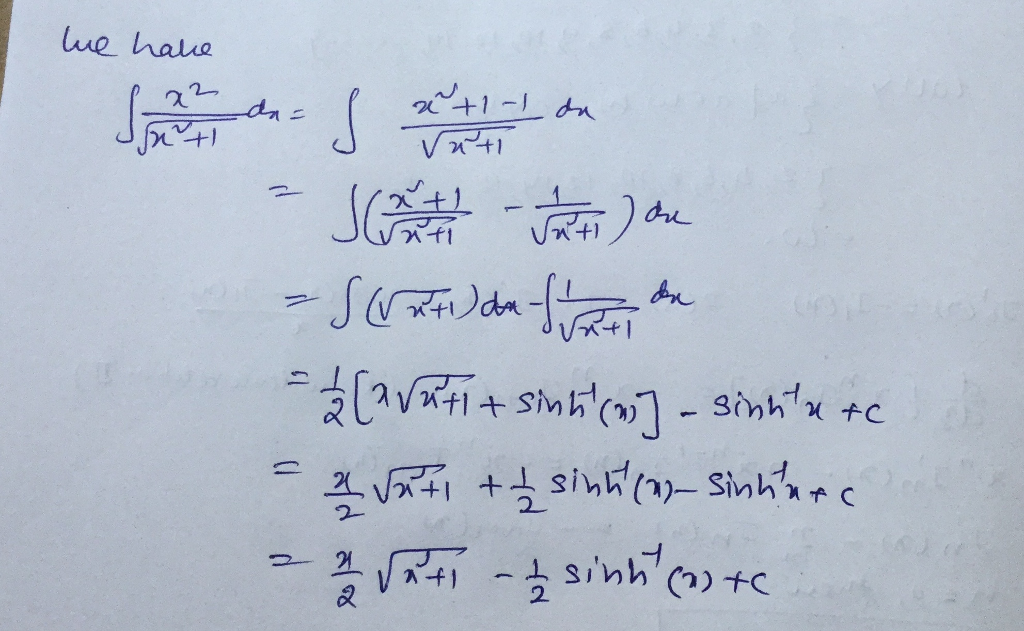 We have
∫ x²/√(x²+1) dx = ∫ (x²+1-1)/√(x²+1) dx
= ∫((x²+1)/√(x²+1) - 1/√(x²+1)) dx
= ∫(√(x²+1))dx - ∫ 1/√(x²+1) dx
= 1/2 [x√(x²+1) + sinh⁻¹(x)] - sinh⁻¹x + c
= x/2 √(x²+1) + 1/2 sinh⁻¹(x) - sinh⁻¹x + c
= x/2 √(x²+1) - 1/2 sinh⁻¹(x) + c